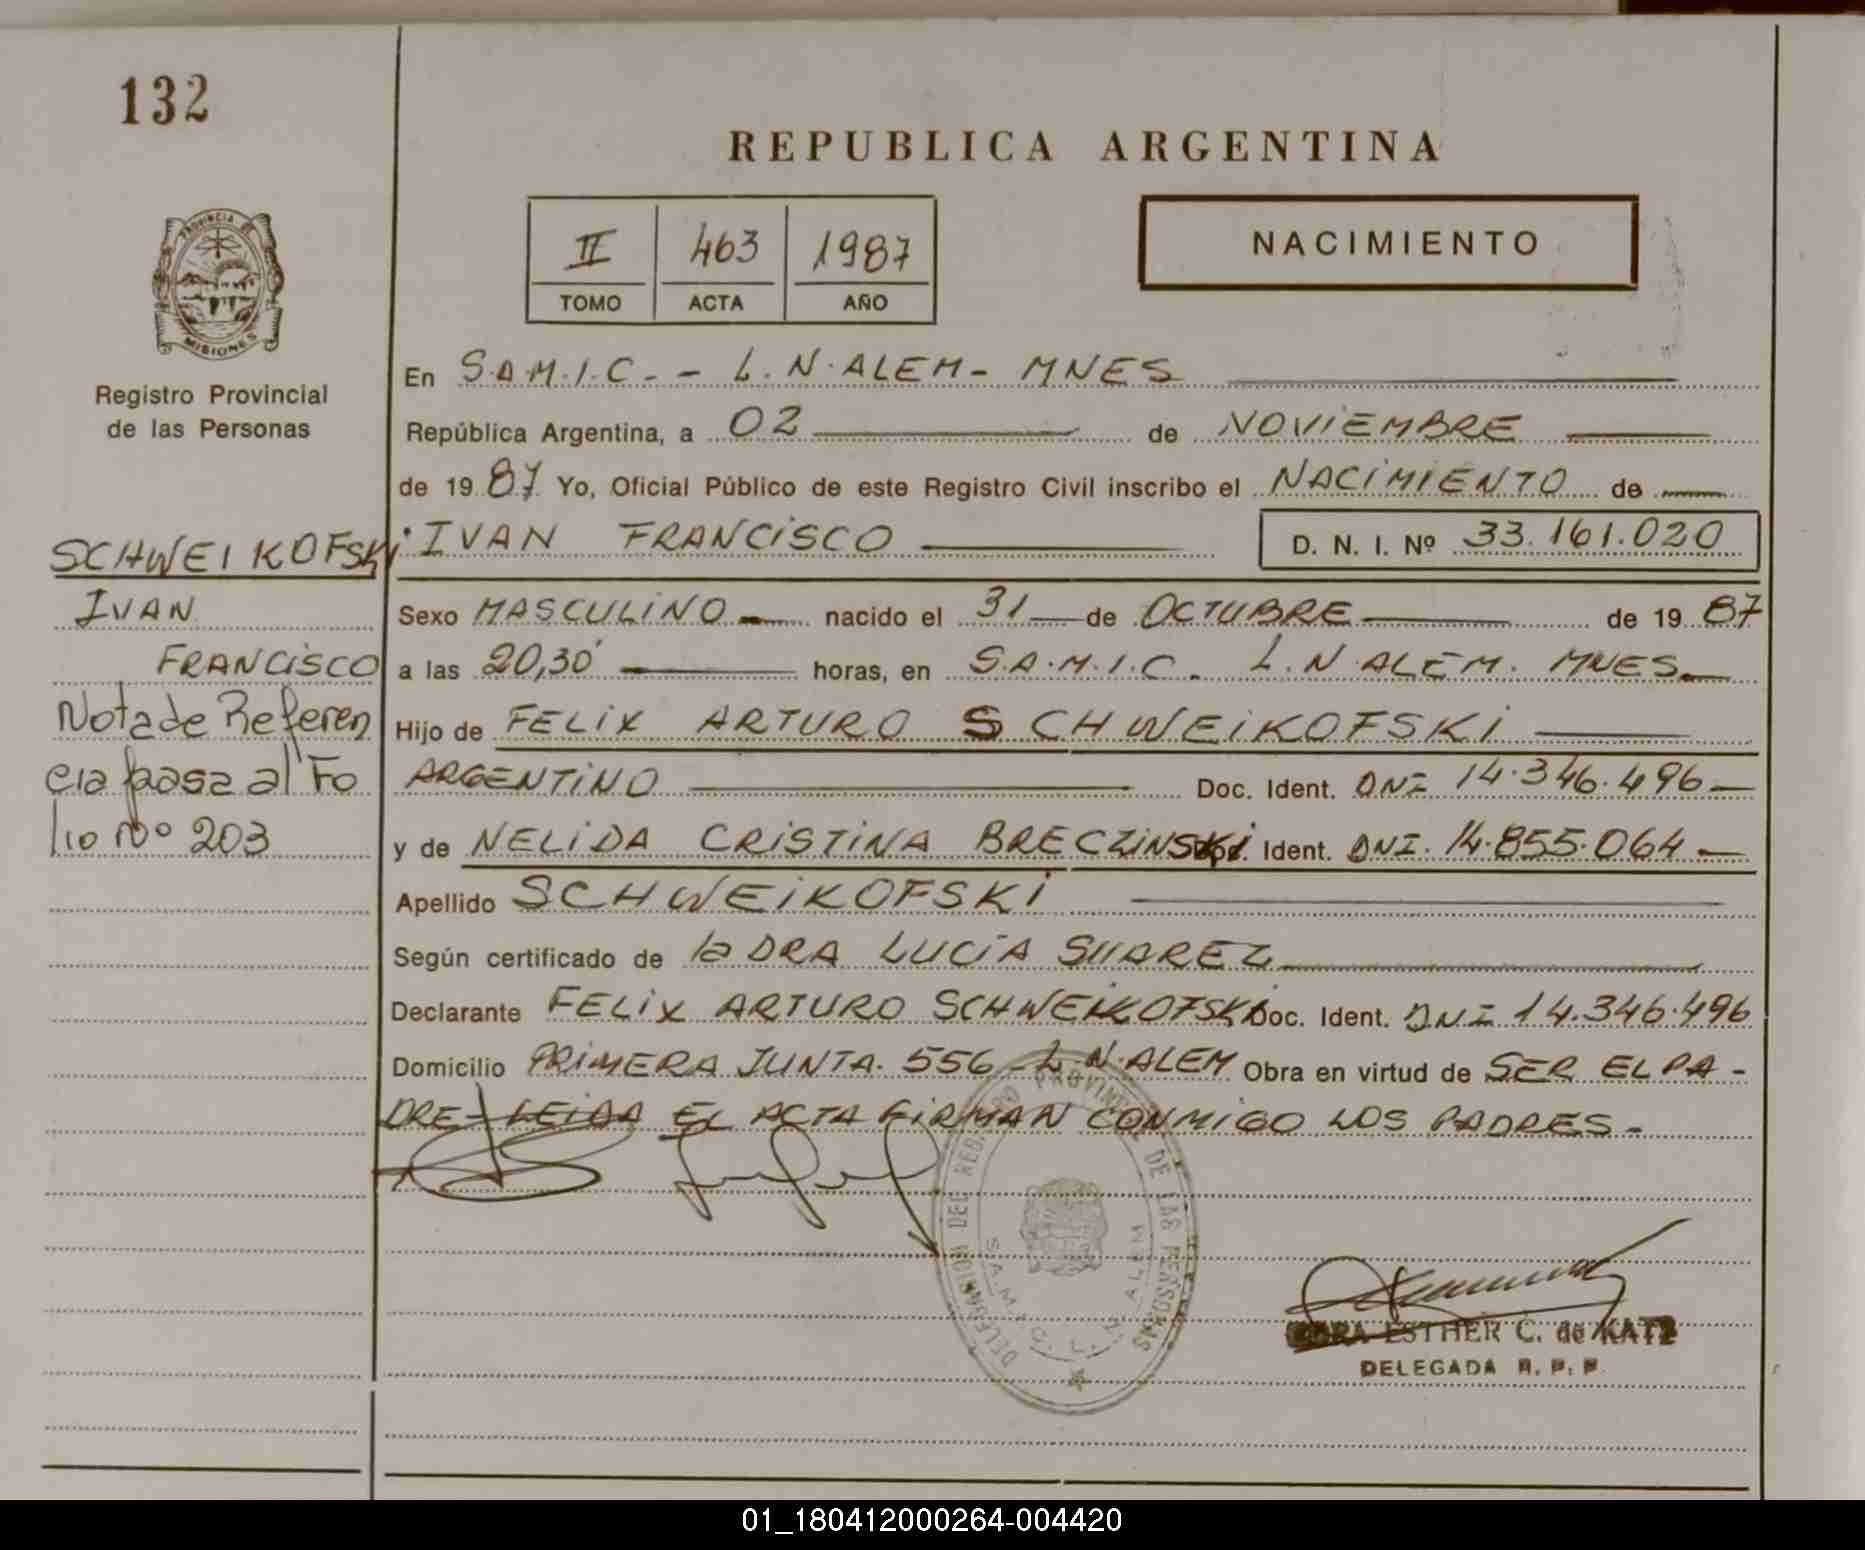 132
REPUBLICA ARGENTINA
II 463 1987
TOMO ACTA AÑO
NACIMIENTO
PROVINCIA DE
MISIONES
Registro Provincial
de las Personas
En S.A.M.I.C. - - L.N.ALEM - MNES
República Argentina, a 02 de NOViEMBRE
de 1987 Yo, Oficial Público de este Registro Civil inscribo el NACiMiENTO de
IVAN FRANCiSCO D. N. I. Nº 33.161.020
SCHWEIKOFSKi
IVAN
FRANCiSCO
Nota de Referen
cia pasa al Fo
lio Nº 203
Sexo MASCULiNO nacido el 31 de OCTUBRE de 1987
a las 20,30 horas, en S.A.M.I.C. L.N.ALEM. MNES
Hijo de FELiX ARTURO SCHWEiKOFSKi
ARGENTiNO Doc. Ident. DNI 14.346.496
y de NELiDA CRiSTiNA BRECZiNSKi Doc. Ident. DNI. 14.855.064
Apellido SCHWEiKOFSKi
Según certificado de la DRA LUCiA SUAREZ
Declarante FELiX ARTURO SCHWEiKOFSKi Doc. Ident. DNI 14.346.496
Domicilio PRiMERA JUNTA. 556 - L.N.ALEM Obra en virtud de SER EL PA-
DRE - LEiDA EL ACTA FiRMAN CONMiGO LOS PADRES.-
DELEGACION DEL REGISTRO PROVINCIAL DE LAS PERSONAS
S.A.M.I.C. L. N. ALEM
ESTHER C. de KATZ
DELEGADA R. P. P.
01_180412000264-004420